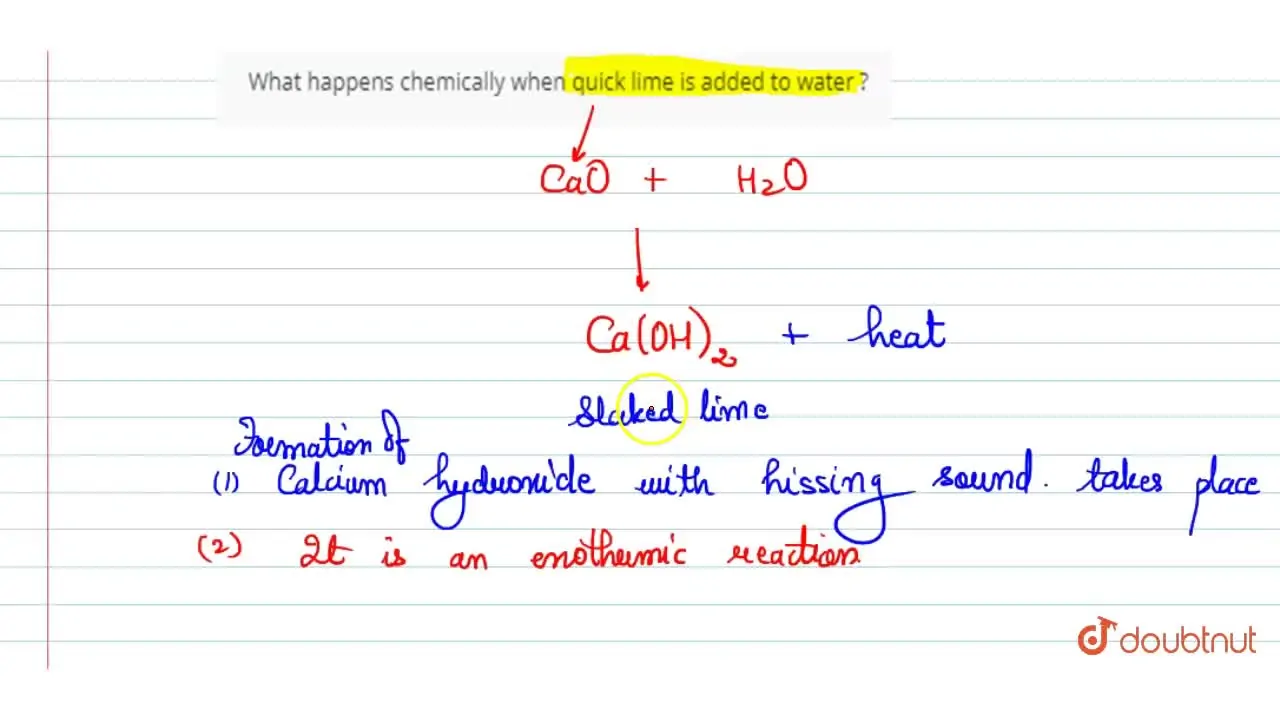 What happens chemically when quick lime is added to water ?
CaO + H2O
Ca(OH)2 + heat
Slaked lime
Formation of
(1) Calcium hydroxide with hissing sound. takes place
(2) It is an exothermic reaction
doubtnut